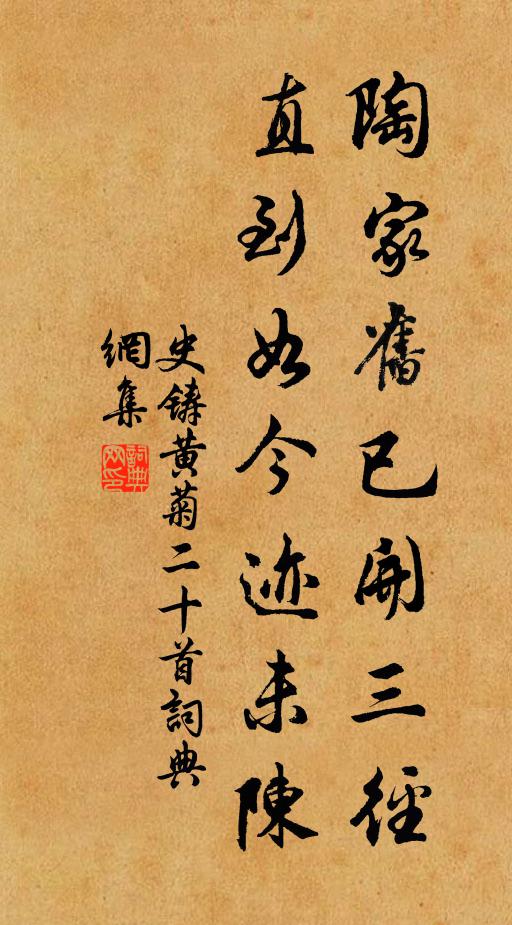 陶家舊已開三徑
直到如今迹未陳
史鑄黃菊二十首詞典
網集
詞典
網印